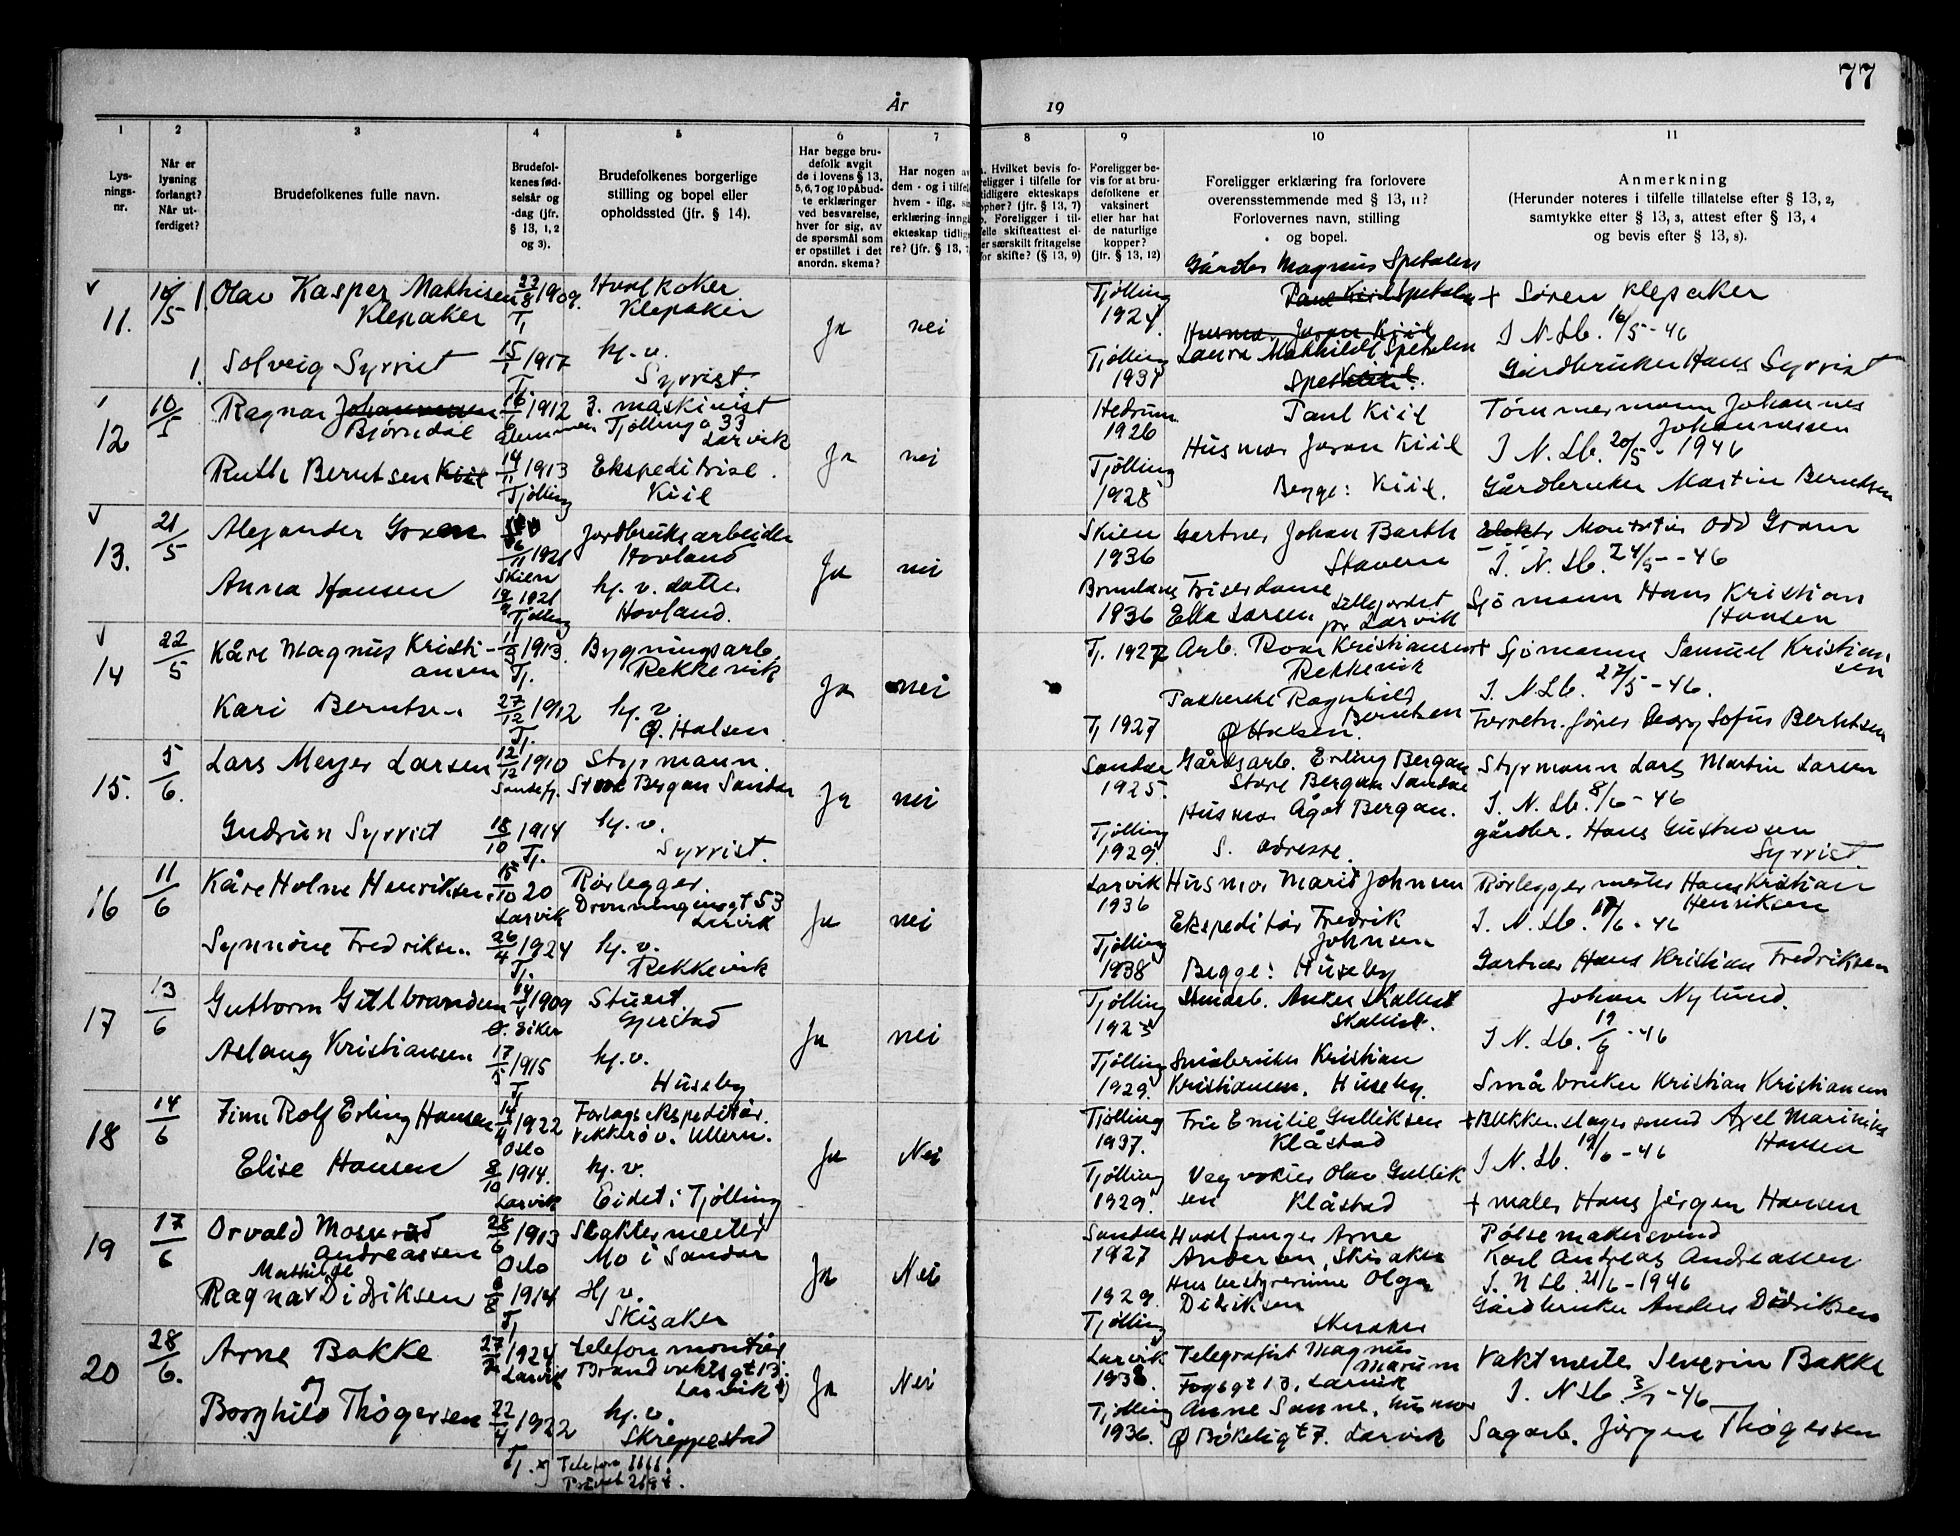 77
År 19
1
2
3
4
5
6
7
8
9
10
11
Lys-
nings-
nr.
Når er
lysning
forlangt?
Når ut-
ferdiget?
Brudefolkenes fulle navn.
Brudefol-
kenes fød-
selsår og
-dag (jfr.
§ 13, 1, 2
og 3).
Brudefolkenes borgerlige
stilling og bopel eller
opholdssted (jfr. § 14).
Har begge bru-
defolk avgit
de i lovens § 13,
5, 6, 7 og 10 påbud-
te erklæringer
ved besvarelse,
hver for sig, av
de spørsmål som
er opstillet i det
anordn. skema?
Har nogen av
dem - og i tilfelle
hvem - iflg.
erklæring inngå
ekteskap tidlig
re? (§ 13, 7
Hvilket bevis fo-
religger i tilfelle for
tidligere ekteskaps
ophør? (§ 13, 7)
Foreligger i til-
felle skifteattest el-
er særskilt fritagelse
for skifte? (§ 13, 9)
Foreligger be-
vis for at bru-
defolkene er
vaksinert
eller har hat
de naturlige
kopper?
(jfr. § 13, 12)
Foreligger erklæring fra forlovere
overensstemmende med § 13, 11?
Forlovernes navn, stilling
og bopel.
Anmerkning
(Herunder noteres i tilfelle tillatelse efter § 13, 2,
samtykke efter § 13, 3, attest efter § 13, 4
og bevis efter § 13, 8).
11.
Olav Kasper Mathisen
Klepaker
23/8 1909
Tj.
Hvalkoker
Klepaker
Ja
nei
Tjølling
1924
Gårdbr Magnus Spetalen
Paul Kiil Spetalen
+ Søren Klepaker
Husmor Joran Kiil
I N. Lb. 16/5 - 46
Solveig Syrrist
15/1 1917
Tj.
hj. v.
Syrrist.
Tjølling
1931
Laura Mathilde Spetalen
Gårdbruker Hans Syrrist
12
10/5
Ragnar Johannessen
Bjørndal
16/6 1912
3. maskinist
Tjøllingg 33
Larvik
Ja
nei
Hedrum
1926
Paul Kiil
Tømmermann Johannes
Johannessen
Husmor Joran Kiil
I N. Lb. 20/5 - 1946
Ruth Berntsen Kiil
14/11 1913
Tjølling
Ekspeditrise.
Kiil
Tjølling
1928
Begge: Kiil.
Gårdbruker Martin Berntsen
13.
21/5
Alexander Gram
26/11 1921
Skien
Jordbruksarbeider
Hovland
Ja
nei
Skien
1936
Gartner Johan Barth
Stavern
Elektr Montør Odd Gram
I. N. Lb. 24/5 - 46
Anna Hansen
19/9 1921
Tjølling
hj. v. datter
Hovland.
Brunlanes
1936
Friserdame
Ella Larsen Lillejordet
pr Larvik
Sjømann Hans Kristian
Hansen
14
22/5
Kåre Magnus Kristi-
ansen
11/9 1913
Tj.
Bygningsarb.
Rekkevik
Ja
nei
Tj. 1927
Arb. Roar Kristiansen
Rekkevik
+ Sjømann Samuel Kristian
sen
I. N. Lb. 27/5 - 46.
Kari Berntsen
27/12 1912
Tj.
hj. v.
Ø. Halsen
Tj 1927
Ragnhild
Berntsen
Ø Halsen.
Forretn. fører Georg Sofus Berntsen
15.
5/6.
Lars Meyer Larsen
12/12 1910
Sandefj.
Styrmann.
Store Bergan Sandar
Ja
nei
Sandar
1925.
Gårdsarb. Erling Bergan
Store Bergan Sandar
Styrmann Lars Martin Larsen
I. N. Lb. 8/6 - 46
Husmor Ågot Bergan.
Gudrun Syrrist
18/10 1914
Tj.
hj. v.
Syrrist.
Tjølling
1929
S. adresse.
gårdbr. Hans Gustavsen
Syrrist.
16
11/6
Kåre Holne Henriksen
15/10 20
Larvik
Rørlegger.
Dronningensgt 53
Larvik
Ja
nei
Larvik
1936
Husmor Marie Johnsen
Rørleggermester Hans Kristian
Henriksen
Ekspeditør Fredrik
Johnsen
I. N. Lb. 17/6 - 46
Synnøve Fredriksen.
26/4 1924
Tj.
hj. v.
Rekkevik
Tjølling
1938
Begge: Huseby
Gartner Hans Kristian Fredriksen
17
13/6
Guttorm Gulbrandsen
14/4 1909
Ø. Eiker
Stuert.
Gjerstad
Ja
nei
Tjølling
1925
Anker Skallist
Skallist.
Johan Nylund.
I N. Lb. 19/6 - 46
Aslaug Kristiansen
17/5 1915
Tj
hj. v.
Huseby
Tjølling
1929.
Småbruker Kristian
Kristiansen. Huseby.
Småbruker Kristian Kristiansen
18
14/6
Finn Rolf Erling Hansen
14/4 1922
Oslo
Forlagsekspeditør.
Vekkerøv. Ullern.
Ja
Nei
Tjølling
1937.
Fru Emilie Gulliksen
Klåstad
+ Blikkenslagersvend Axel Marinius
Hansen
I N. Lb. 19/6 - 46
Elise Hansen
8/10 1914.
Larvik
hj. v.
Eidet i Tjølling
Tjølling
1929.
Vegvokter Olav Gullik
sen Klåstad
+ maler Hans Jørgen Hansen
19
17/6
Orvald Mosserød
Andreassen
28/6 1913
Oslo
Slaktermester
Mo i Sandar
Ja
Nei
Sandar
1927
Hvalfanger Arne
Andersen, Skisaker
Pølsemakersvend
Karl Andreas Andreassen
I. N Lb. 21/6 - 1946
Mathilde
Ragna Didriksen
8/8 1914
Tj
Hj v.
Skisaker
1929.
Tjølling
Husbestyrerinne Olga
Didriksen
Skisaker
Gårdbruker Anders Didriksen
20
28/6.
Arne Bakke
1924
Larvik
telefonmontør
Brandvaktsgt 13.
Larvik x)
Ja
Nei
Larvik
1938.
Telegrafist Magnus
Marum
Fogsgt 13, Larvik
Vaktmester Severin Bakke
I. N Lb. 3/7 - 46
Borghild Thøgersen
22/4 1922
Tj.
hj. v.
Skreppestad
Tjølling
1936.
Anne Sanne, husmor
Ø Bøkeligt 7. Larvik
Sagarb. Jørgen Thøgersen
x) Telefon 1111
Privat 2194.